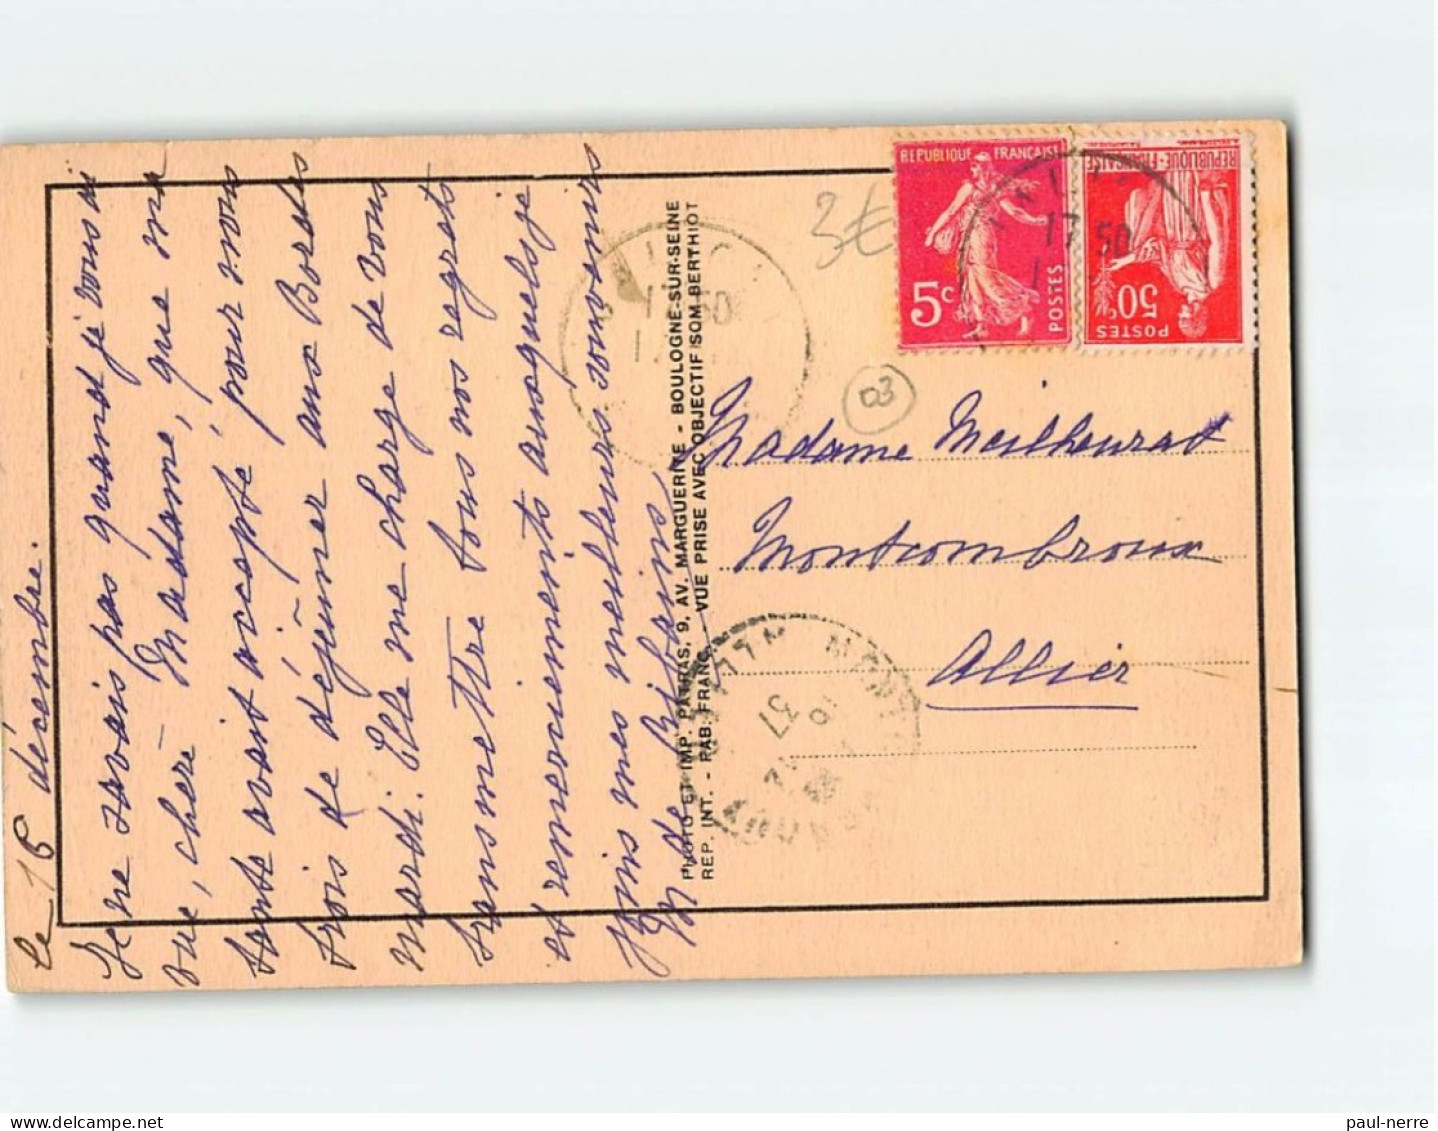 le 15 décembre.
Je ne savais pas quand je vous ai
vue, chère Madame, que ma
tante avait accepté, pour nous
trois de déjeuner aux Bordes
mardi. Elle me charge de vous
transmettre tous nos regrets
et remerciements auxquels je
joins mes meilleurs souvenirs
M de
PHOTO ET IMP. PATRAS, 9, AV. MARGUERITE - BOULOGNE-SUR-SEINE
REP. INT. - FAB. FRANC. - VUE PRISE AVEC OBJECTIF SOM BERTHIOT
3€
03
REPUBLIQUE FRANÇAISE
5c
POSTES
REPUBLIQUE FRANÇAISE
50c
POSTES
17 50
17 50
Madame Meilheurat
Montcombroux
Allier
37
paul-nerre